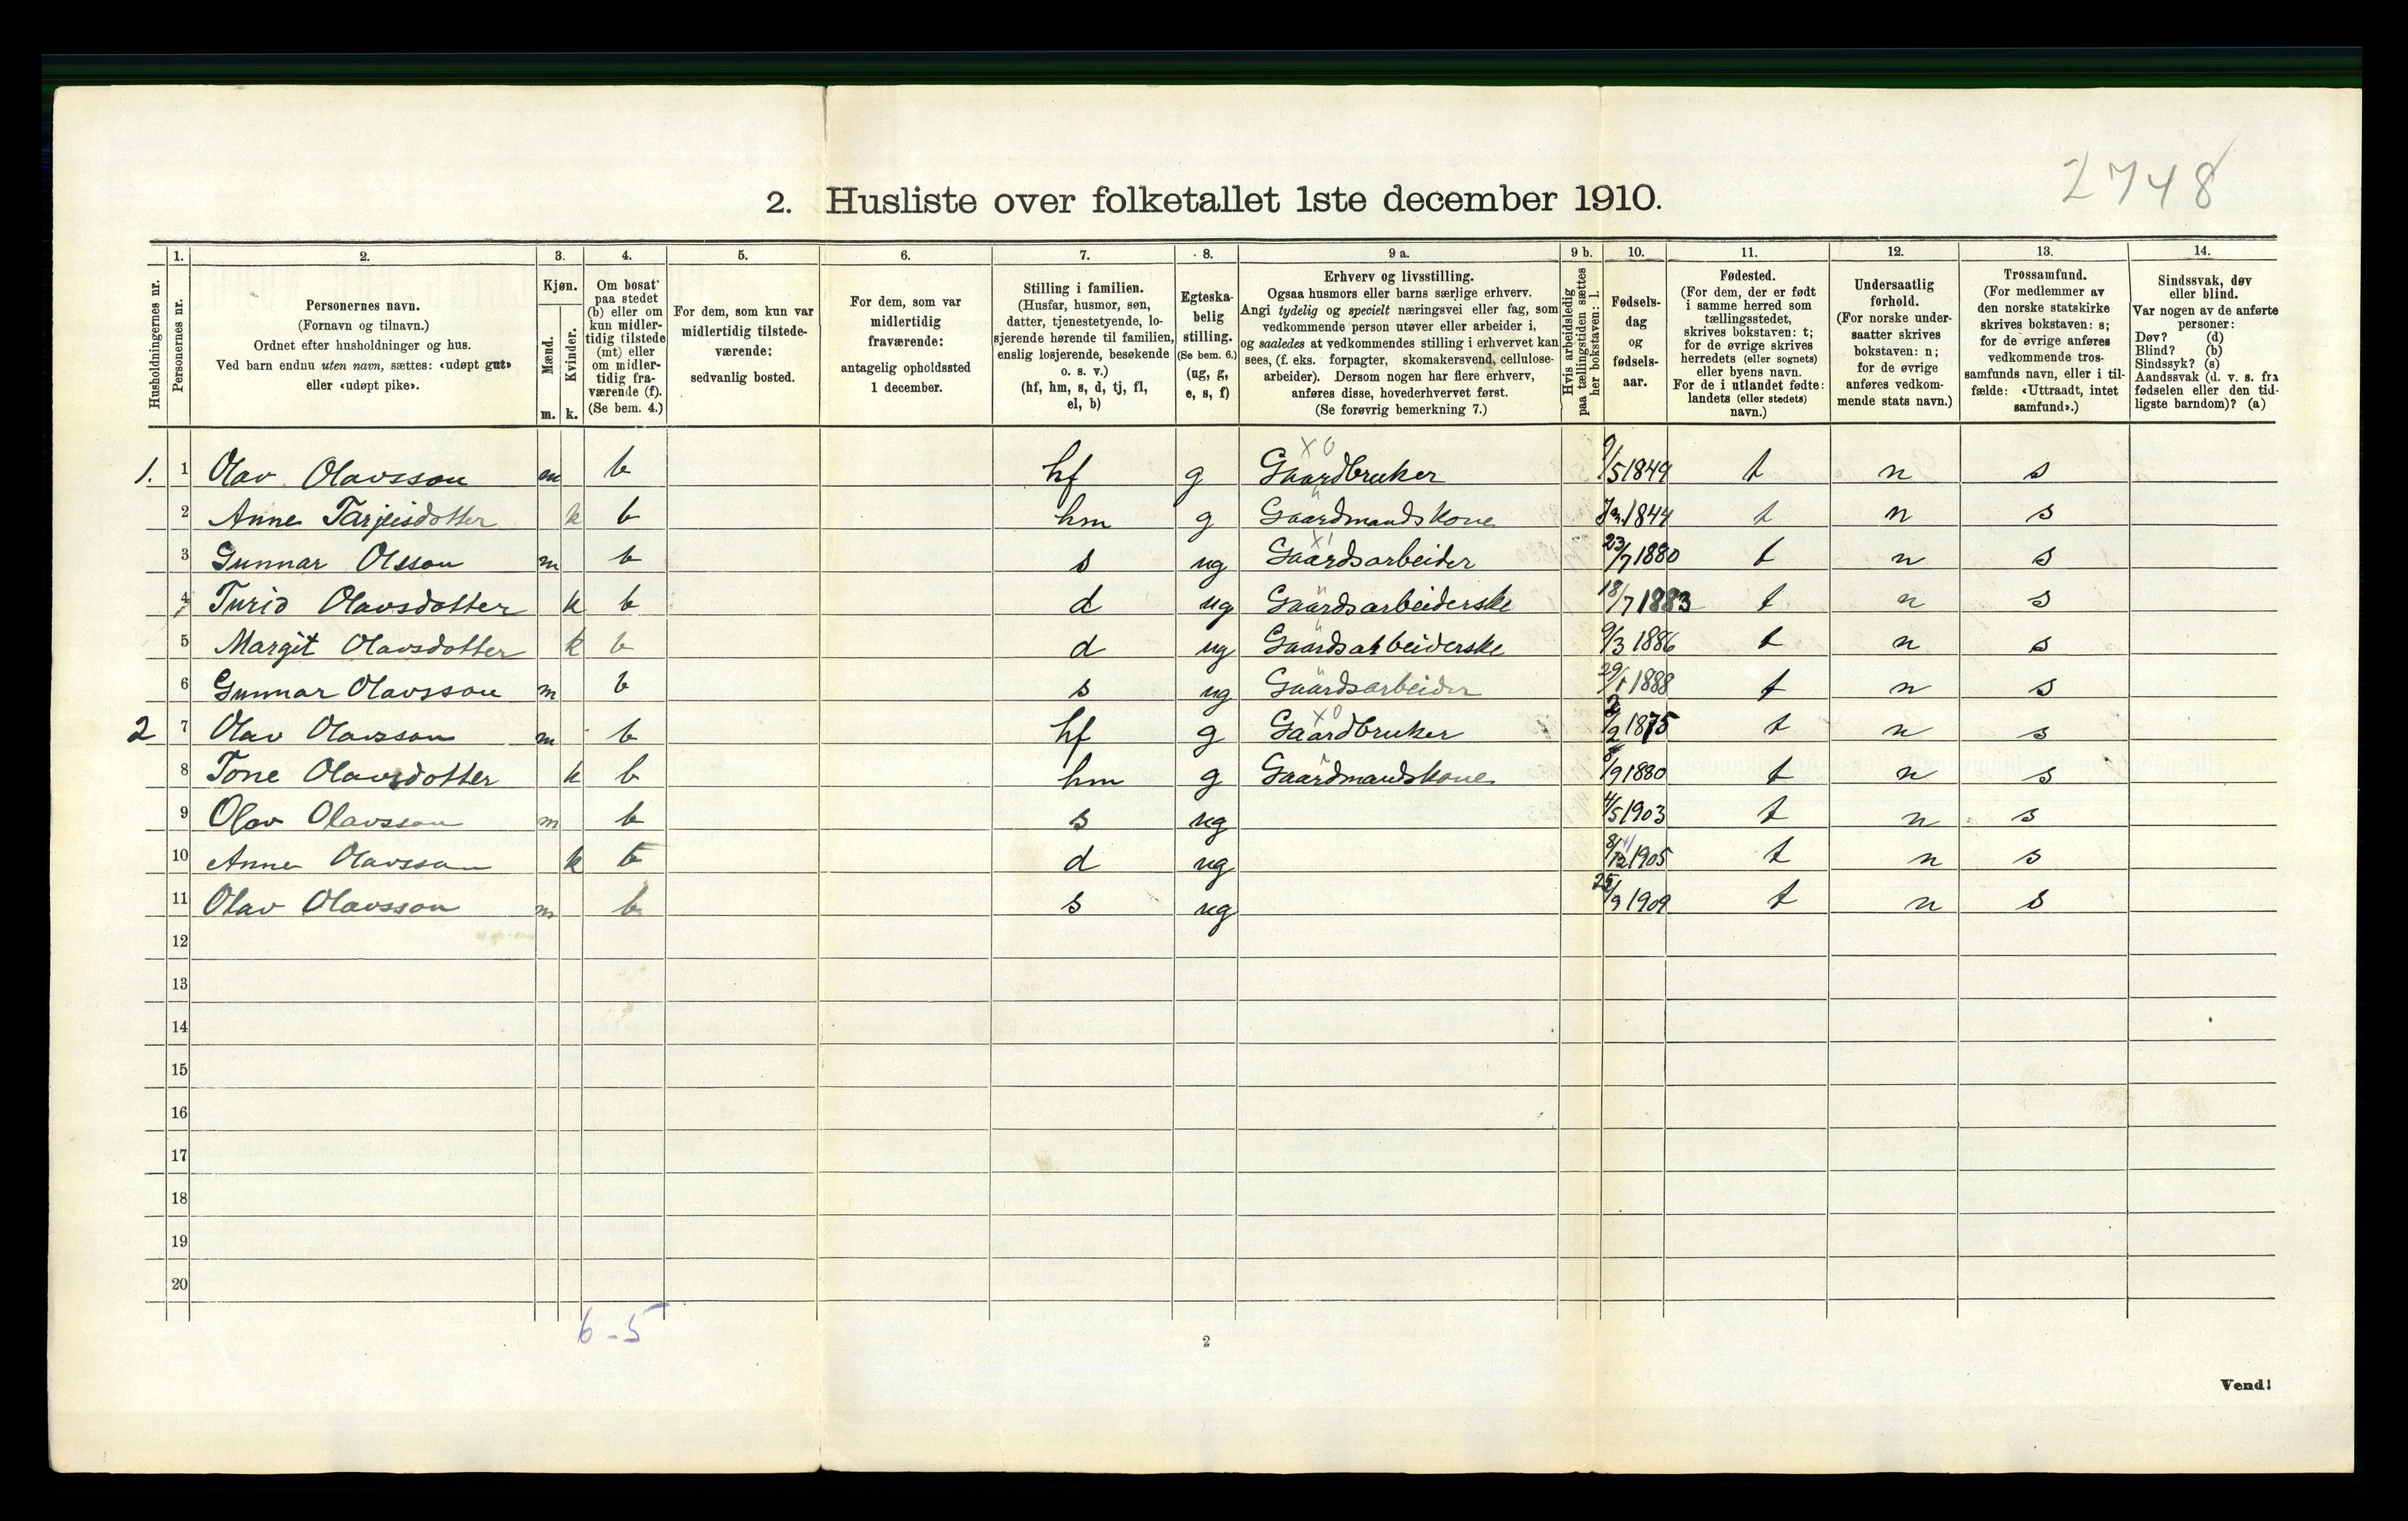 2748
2. Husliste over folketallet 1ste december 1910.
Husholdningernes nr.
1.
Personernes nr.
2.
Personernes navn.
(Fornavn og tilnavn.)
Ordnet efter husholdninger og hus.
Ved barn endnu uten navn, sættes: «udøpt gut»
eller «udøpt pike».
3.
Kjøn.
Mænd.
Kvinder.
m. k.
4.
Om bosat
paa stedet
(b) eller om
kun midler-
tidig tilstede
(mt) eller
om midler-
tidig fra-
værende (f).
(Se bem. 4.)
5.
For dem, som kun var
midlertidig tilstede-
værende:
sedvanlig bosted.
6.
For dem, som var
midlertidig
fraværende:
antagelig opholdssted
1 december.
7.
Stilling i familien.
(Husfar, husmor, søn,
datter, tjenestetyende, lo-
sjerende hørende til familien,
enslig losjerende, besøkende
o. s. v.)
(hf, hm, s, d, tj, fl,
el, b)
8.
Egteska-
belig
stilling.
(Se bem. 6.)
(ug, g,
e, s, f)
9 a.
Erhverv og livsstilling.
Ogsaa husmors eller barns særlige erhverv.
Angi tydelig og specielt næringsvei eller fag, som
vedkommende person utøver eller arbeider i,
og saaledes at vedkommendes stilling i erhvervet kan
sees, (f. eks. forpagter, skomakersvend, cellulose-
arbeider). Dersom nogen har flere erhverv,
anføres disse, hovederhvervet først.
(Se forøvrig bemerkning 7.)
9 b.
Hvis arbeidsledig
paa tællingstiden sættes
her bokstaven: l.
10.
Fødsels-
dag
og
fødsels-
aar.
11.
Fødested.
(For dem, der er født
i samme herred som
tællingsstedet,
skrives bokstaven: t;
for de øvrige skrives
herredets (eller sognets)
eller byens navn.
For de i utlandet fødte:
landets (eller stedets)
navn.)
12.
Undersaatlig
forhold.
(For norske under-
saatter skrives
bokstaven: n;
for de øvrige
anføres vedkom-
mende stats navn.)
13.
Trossamfund.
(For medlemmer av
den norske statskirke
skrives bokstaven: s;
for de øvrige anføres
vedkommende tros-
samfunds navn, eller i til-
fælde: «Uttraadt, intet
samfund».)
14.
Sindssvak, døv
eller blind.
Var nogen av de anførte
personer:
Døv? (d)
Blind? (b)
Sindssyk? (s)
Aandssvak (d. v. s. fra
fødselen eller den tid-
ligste barndom)? (a)
X 0
1. 1 Olav Olavsson m b hf g Gaardbruker 9/5 1849 t n s
2 Anne Tarjeisdotter k b hm g " Gaardmandskone Jan. 1844 t n s
X 1
3 Gunnar Olsson m b s ug Gaardsarbeider 23/7 1880 t n s
4 Turid Olavsdotter k b d ug " Gaardsarbeiderske 18/7 1883 t n s
5 Margit Olavsdotter k b d ug " Gaardsarbeiderske 9/3 1886 t n s
6 Gunnar Olavsson m b s ug " Gaardsarbeider 29/1 1888 t n s
X 0
2 7 Olav Olavsson m b hf g Gaardbruker 2/2 1875 t n s
8 Tone Olavsdotter k b hm g " Gaardmandskone 8/9 1880 t n s
9 Olav Olavsson m b s ug 4/5 1903 t n s
10 Anne Olavsson k b d ug 8/12 1905 t n s
11 Olav Olavsson m b s ug 25/9 1909 t n s
12
13
14
15
16
17
18
19
20
6 - 5
2
Vend!